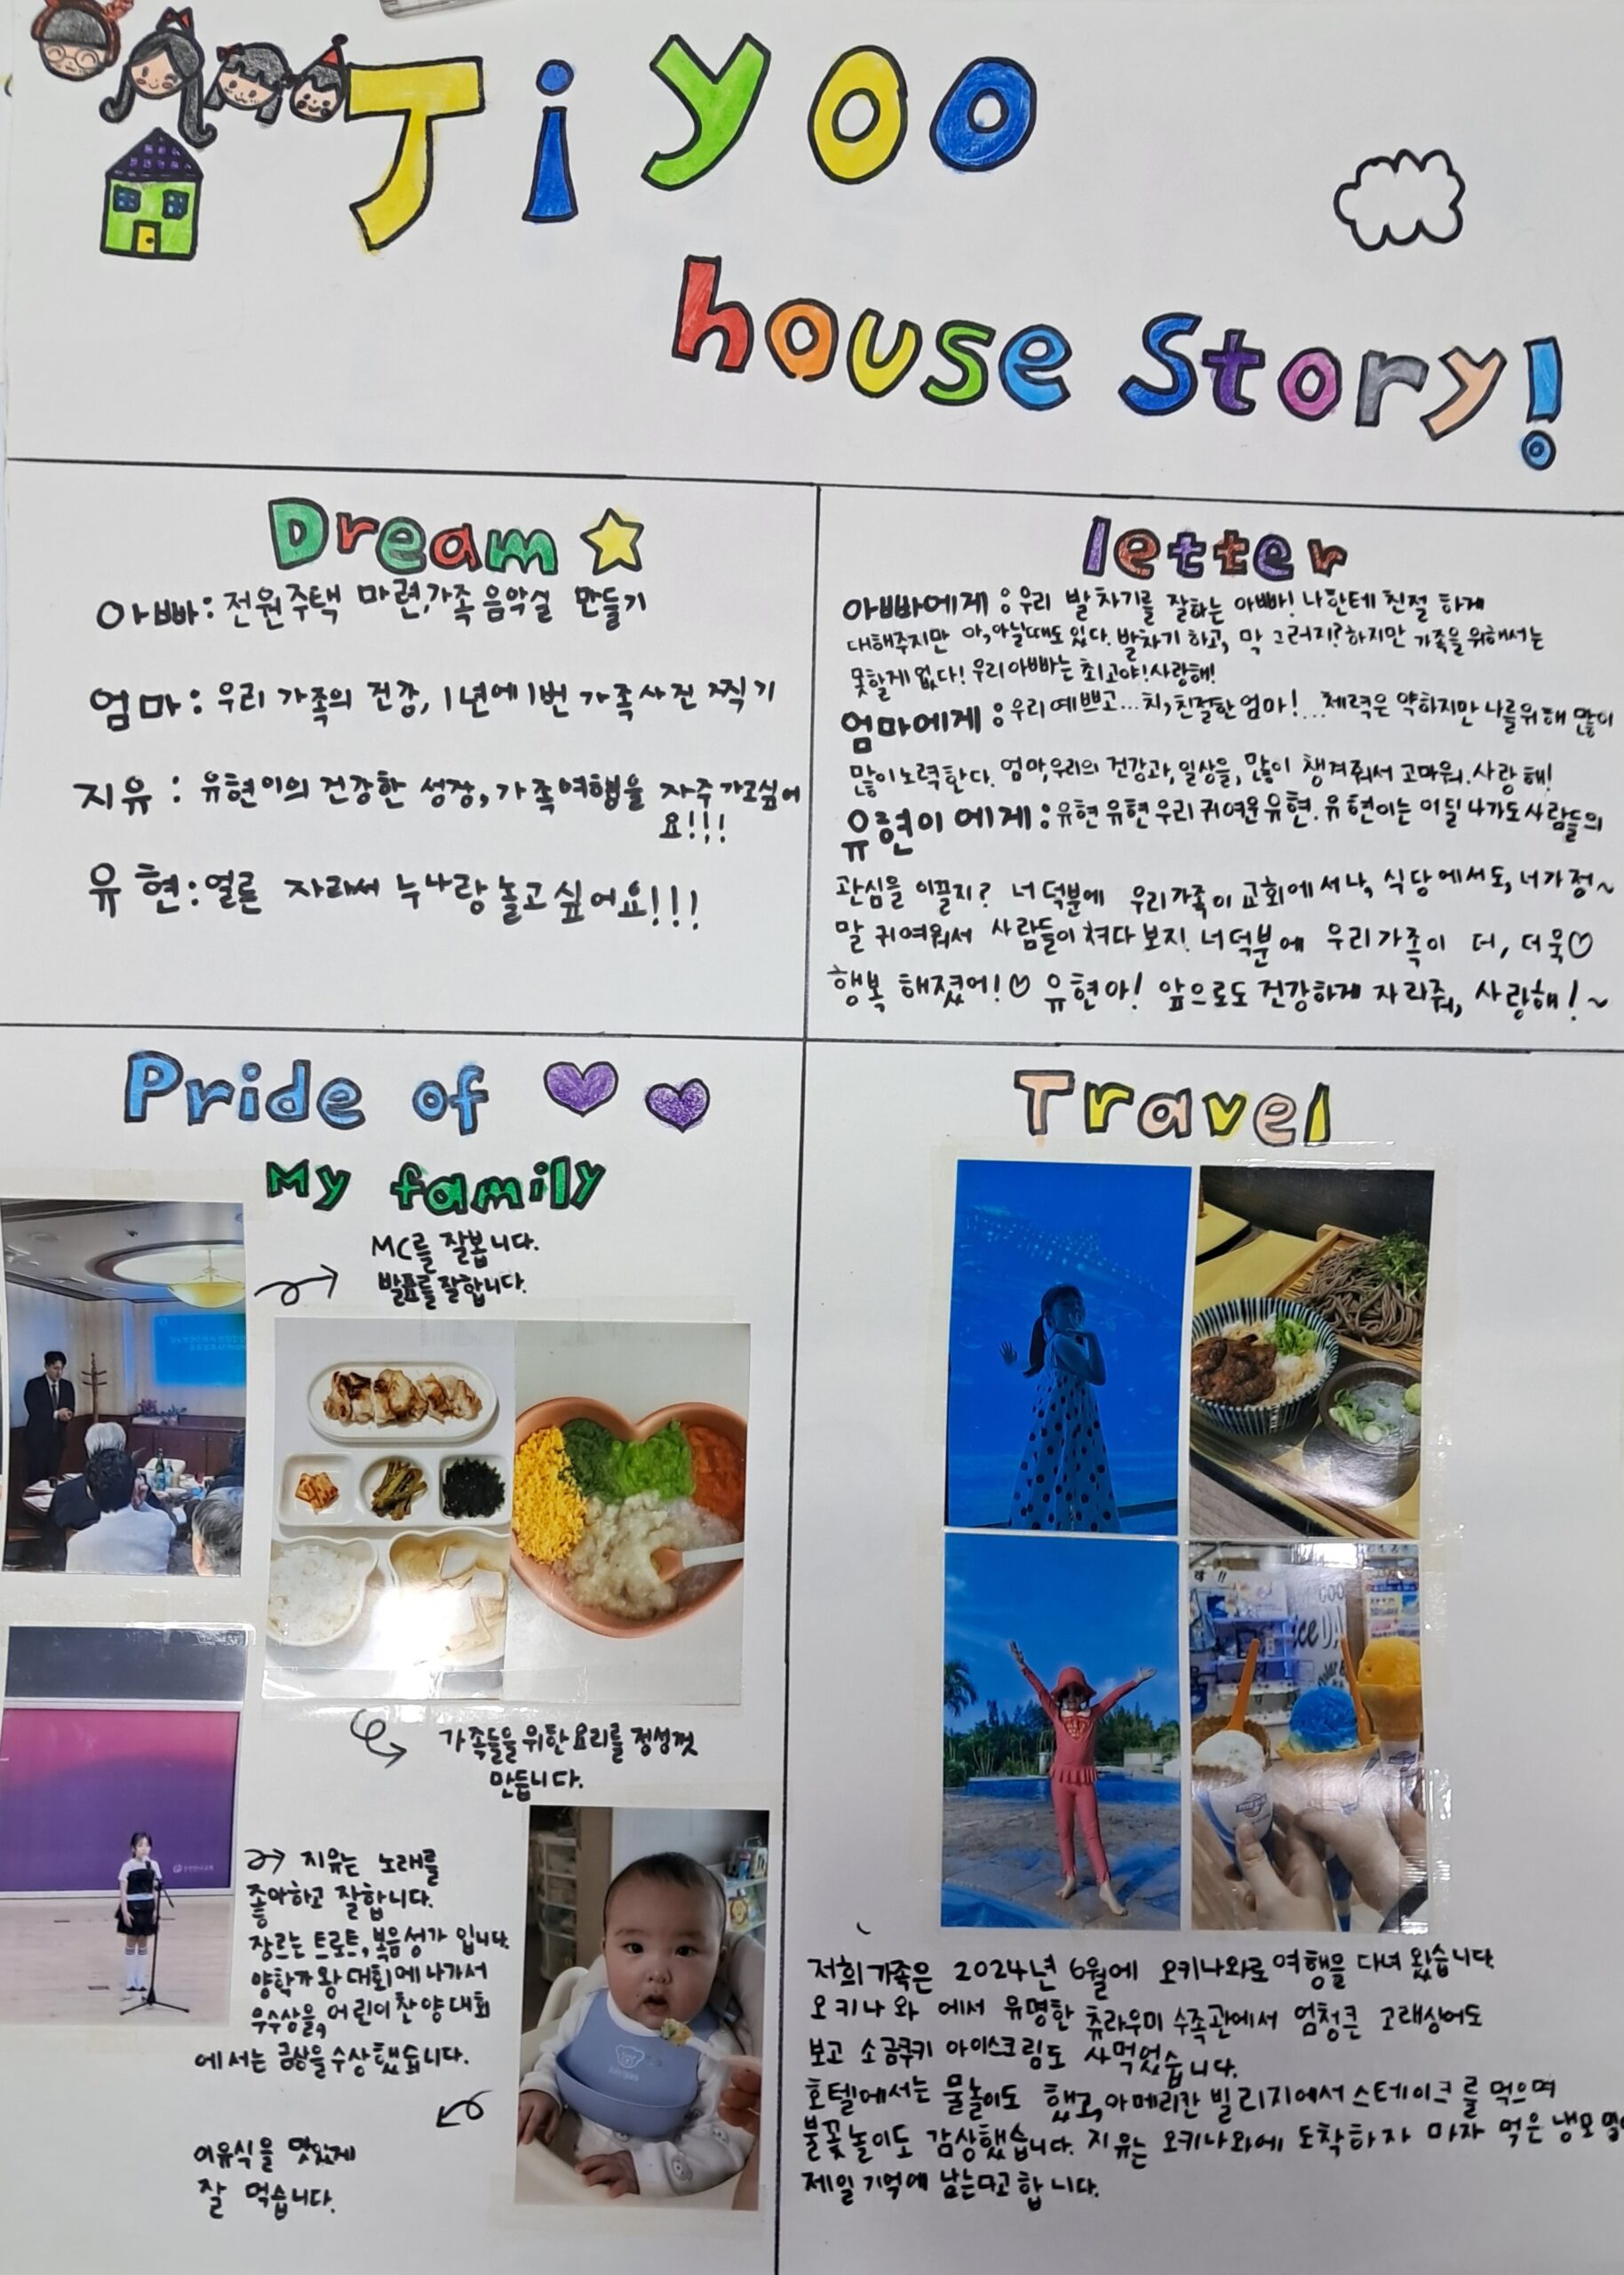 Jiyoo
house Story!
Dream
아빠: 전원주택 마련, 가족 음악실 만들기
엄마: 우리 가족의 건강, 1년에 1번 가족사진 찍기
지유: 유현이의 건강한 성장, 가족여행을 자주 가고싶어
요!!!
유현: 얼른 자라서 누나랑 놀고 싶어요!!!
letter
아빠에게: 우리 발차기를 잘하는 아빠! 나한테 친절 하게
대해주지만 아, 아닐때도 있다. 발차기 하고, 막 그러지? 하지만 가족을 위해서는
못할게 없다! 우리 아빠는 최고야! 사랑해!
엄마에게: 우리 예쁘고... 치, 친절한 엄마!... 체력은 약하지만 나를 위해 많이
많이 노력한다. 엄마, 우리의 건강과, 일상을, 많이 챙겨줘서 고마워. 사랑해!
유현이에게: 유현 유현 우리 귀여운 유현. 유현이는 어딜 나가도 사람들의
관심을 이끌지? 너 덕분에 우리가족이 교회에서나, 식당에서도, 너가 정~
말 귀여워서 사람들이 쳐다 보지! 너 덕분에 우리가족이 더, 더욱♡
행복 해졌어!♡ 유현아! 앞으로도 건강하게 자라줘, 사랑해!~
Pride of
My family
MC를 잘봅니다.
발표를 잘합니다.
가족들을 위한 요리를 정성껏
만듭니다.
지유는 노래를
좋아하고 잘합니다.
장르는 트로트, 복음성가 입니다.
양학가왕 대회에 나가서
우수상을, 어린이 찬양대회
에서는 금상을 수상했습니다.
이유식을 맛있게
잘 먹습니다.
Travel
저희 가족은 2024년 6월에 오키나와로 여행을 다녀 왔습니다.
오키나와 에서 유명한 츄라우미 수족관에서 엄청큰 고래상어도
보고 소금쿠키 아이스크림도 사먹었습니다.
호텔에서는 물놀이도 했고, 아메리칸 빌리지에서 스테이크를 먹으며
불꽃놀이도 감상했습니다. 지유는 오키나와에 도착하자 마자 먹은 냉모밀
제일 기억에 남는다고 합니다.